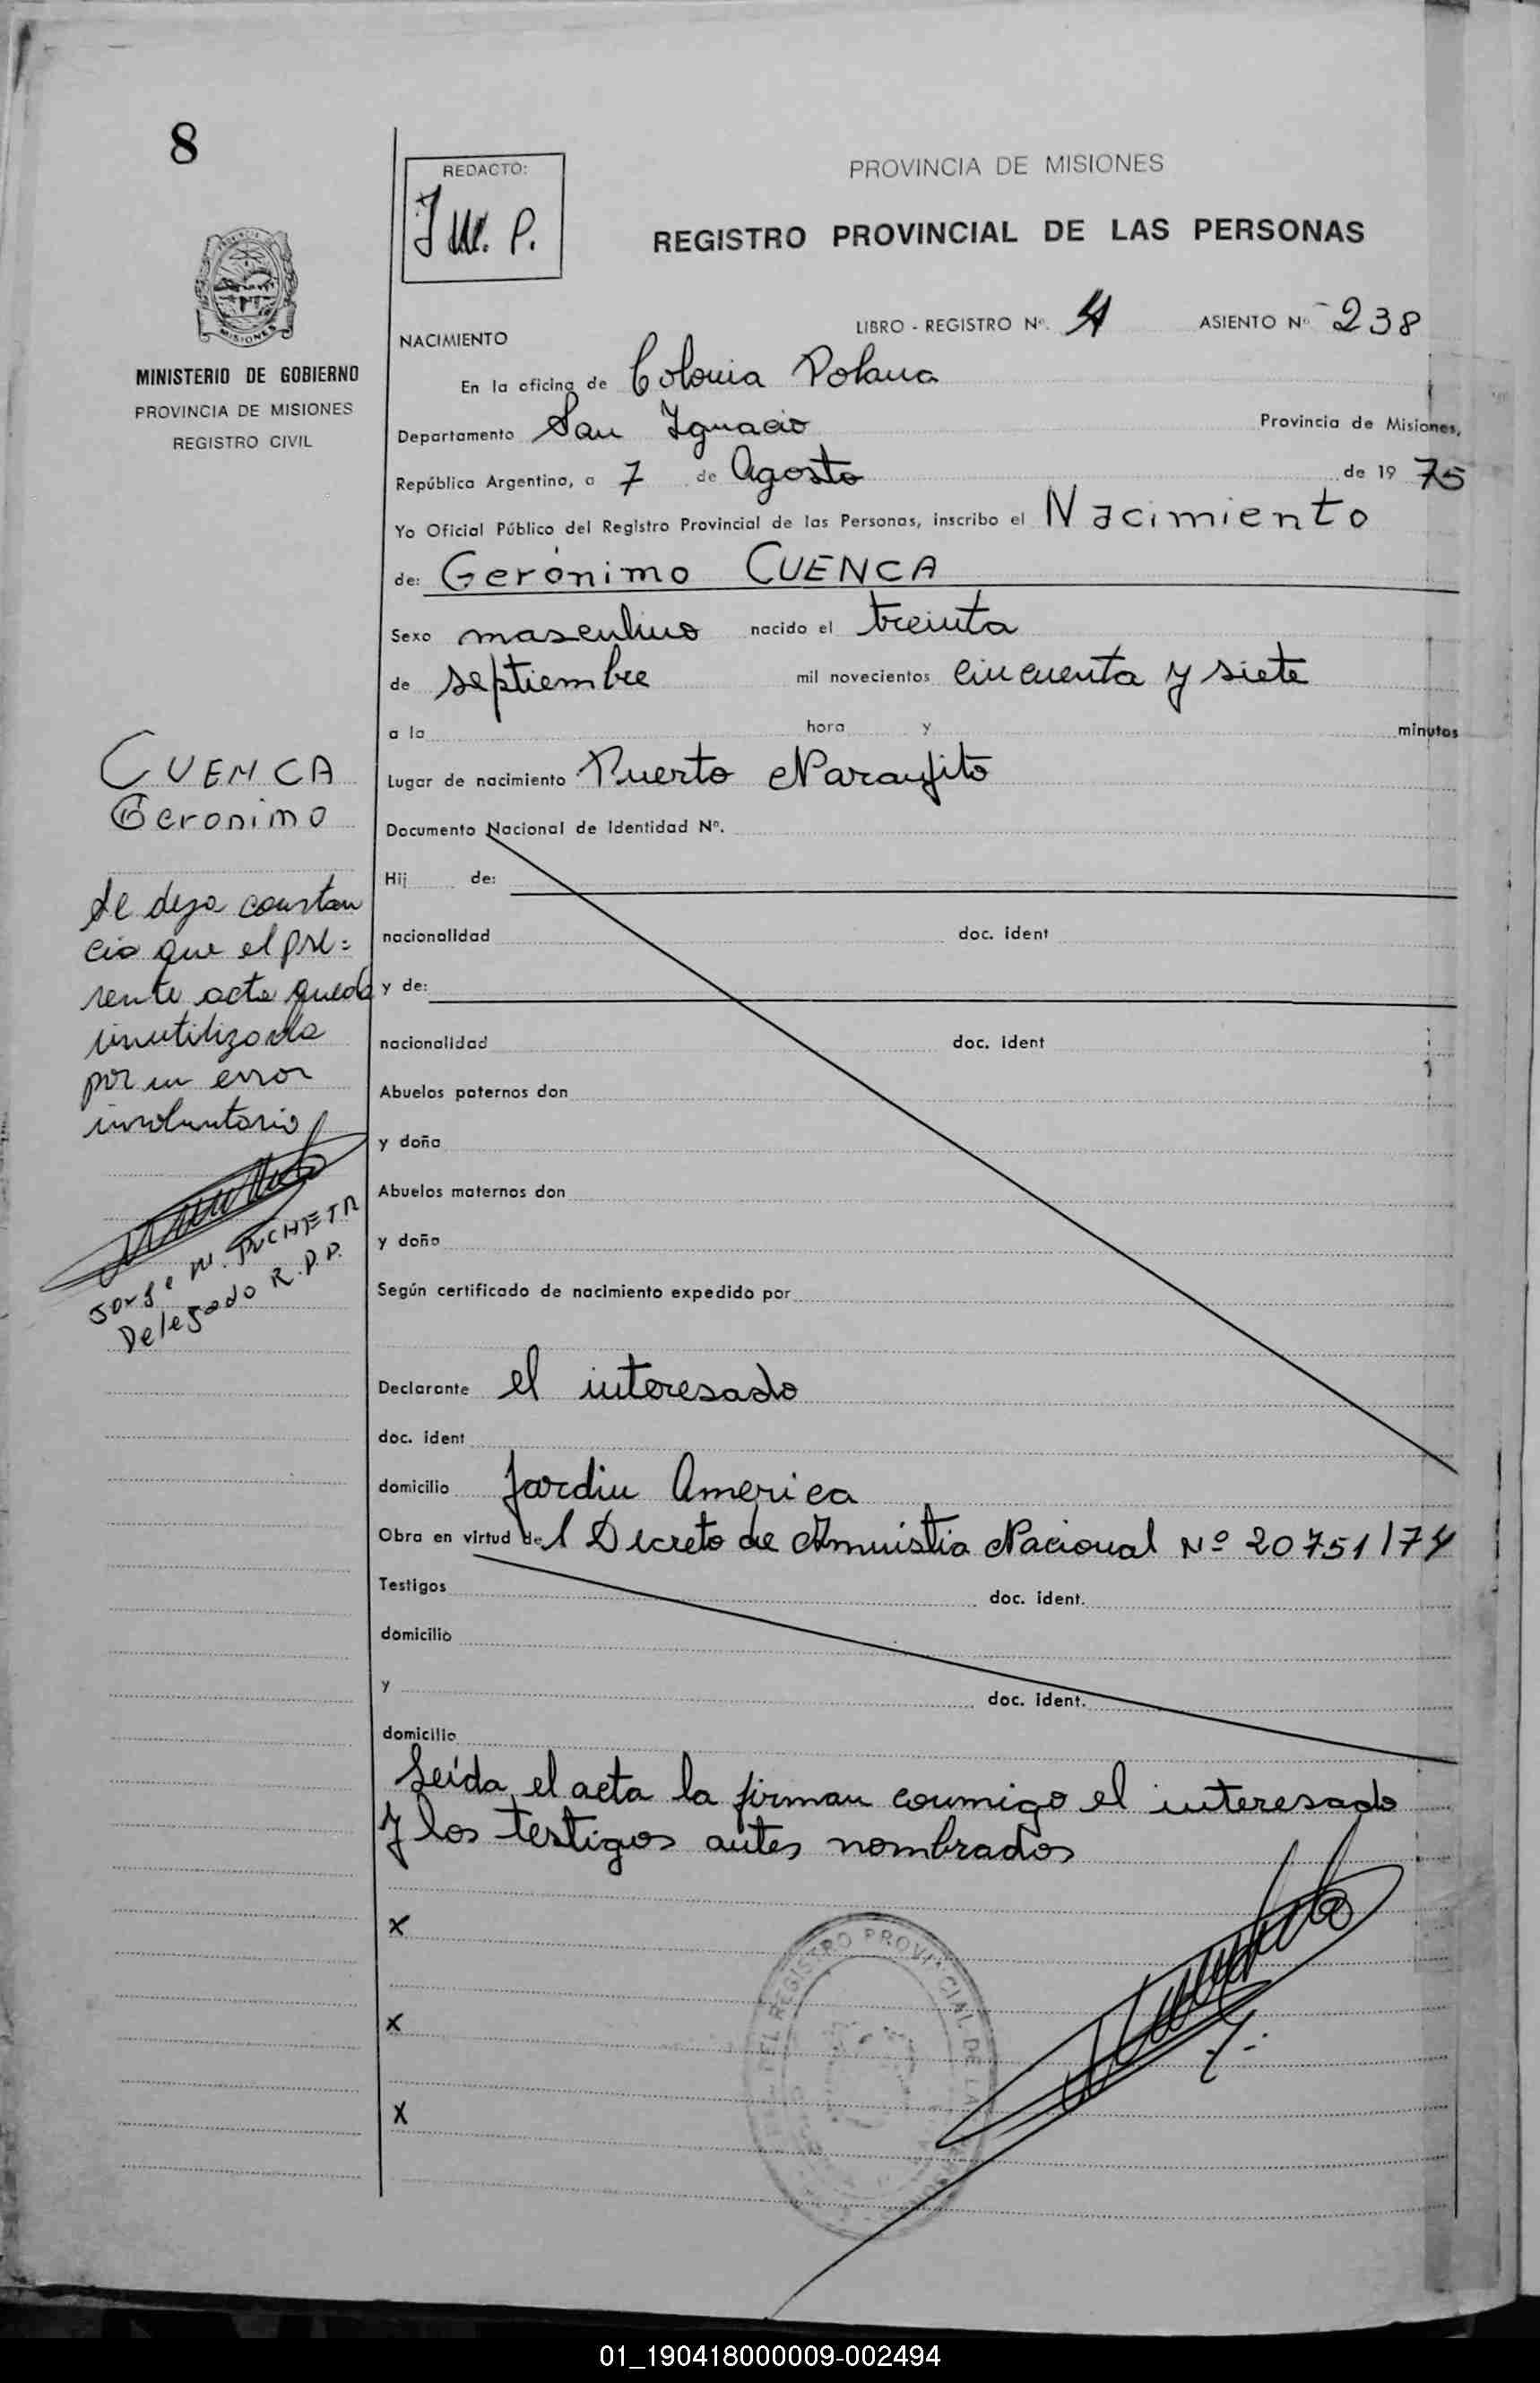 8
REDACTO:
J M. P.
PROVINCIA DE MISIONES
REGISTRO PROVINCIAL DE LAS PERSONAS
MINISTERIO DE GOBIERNO
PROVINCIA DE MISIONES
REGISTRO CIVIL
LIBRO - REGISTRO Nº. 4 ASIENTO Nº 238
NACIMIENTO
En la oficina de Colonia Polana
Departamento San Ignacio Provincia de Misiones,
República Argentina, a 7 de Agosto de 19 75
Yo Oficial Público del Registro Provincial de las Personas, inscribo el Nacimiento
de: Gerónimo CUENCA
Sexo masculino nacido el treinta
de septiembre mil novecientos cincuenta y siete
a la hora y minutos
Lugar de nacimiento Puerto Naranjito
Documento Nacional de Identidad Nº.
Hij de:
nacionalidad doc. ident
y de:
nacionalidad doc. ident
Abuelos paternos don
y doña
Abuelos maternos don
y doña
Según certificado de nacimiento expedido por
Declarante el interesado
doc. ident
domicilio Jardin America
Obra en virtud del Decreto de Amnistia Nacional Nº 20751/74
Testigos doc. ident.
domicilio
y doc. ident.
domicilio
Leída el acta la firman conmigo el interesado
y los testigos antes nombrados
x
x
x
CUENCA
Geronimo
Se deja constan
cia que el pre=
sente acta queda
inutilizada
por un error
involuntario
Jorge M.
Delegado R.P.P.
DEL REGISTRO PROVINCIAL DE LA
01_190418000009-002494